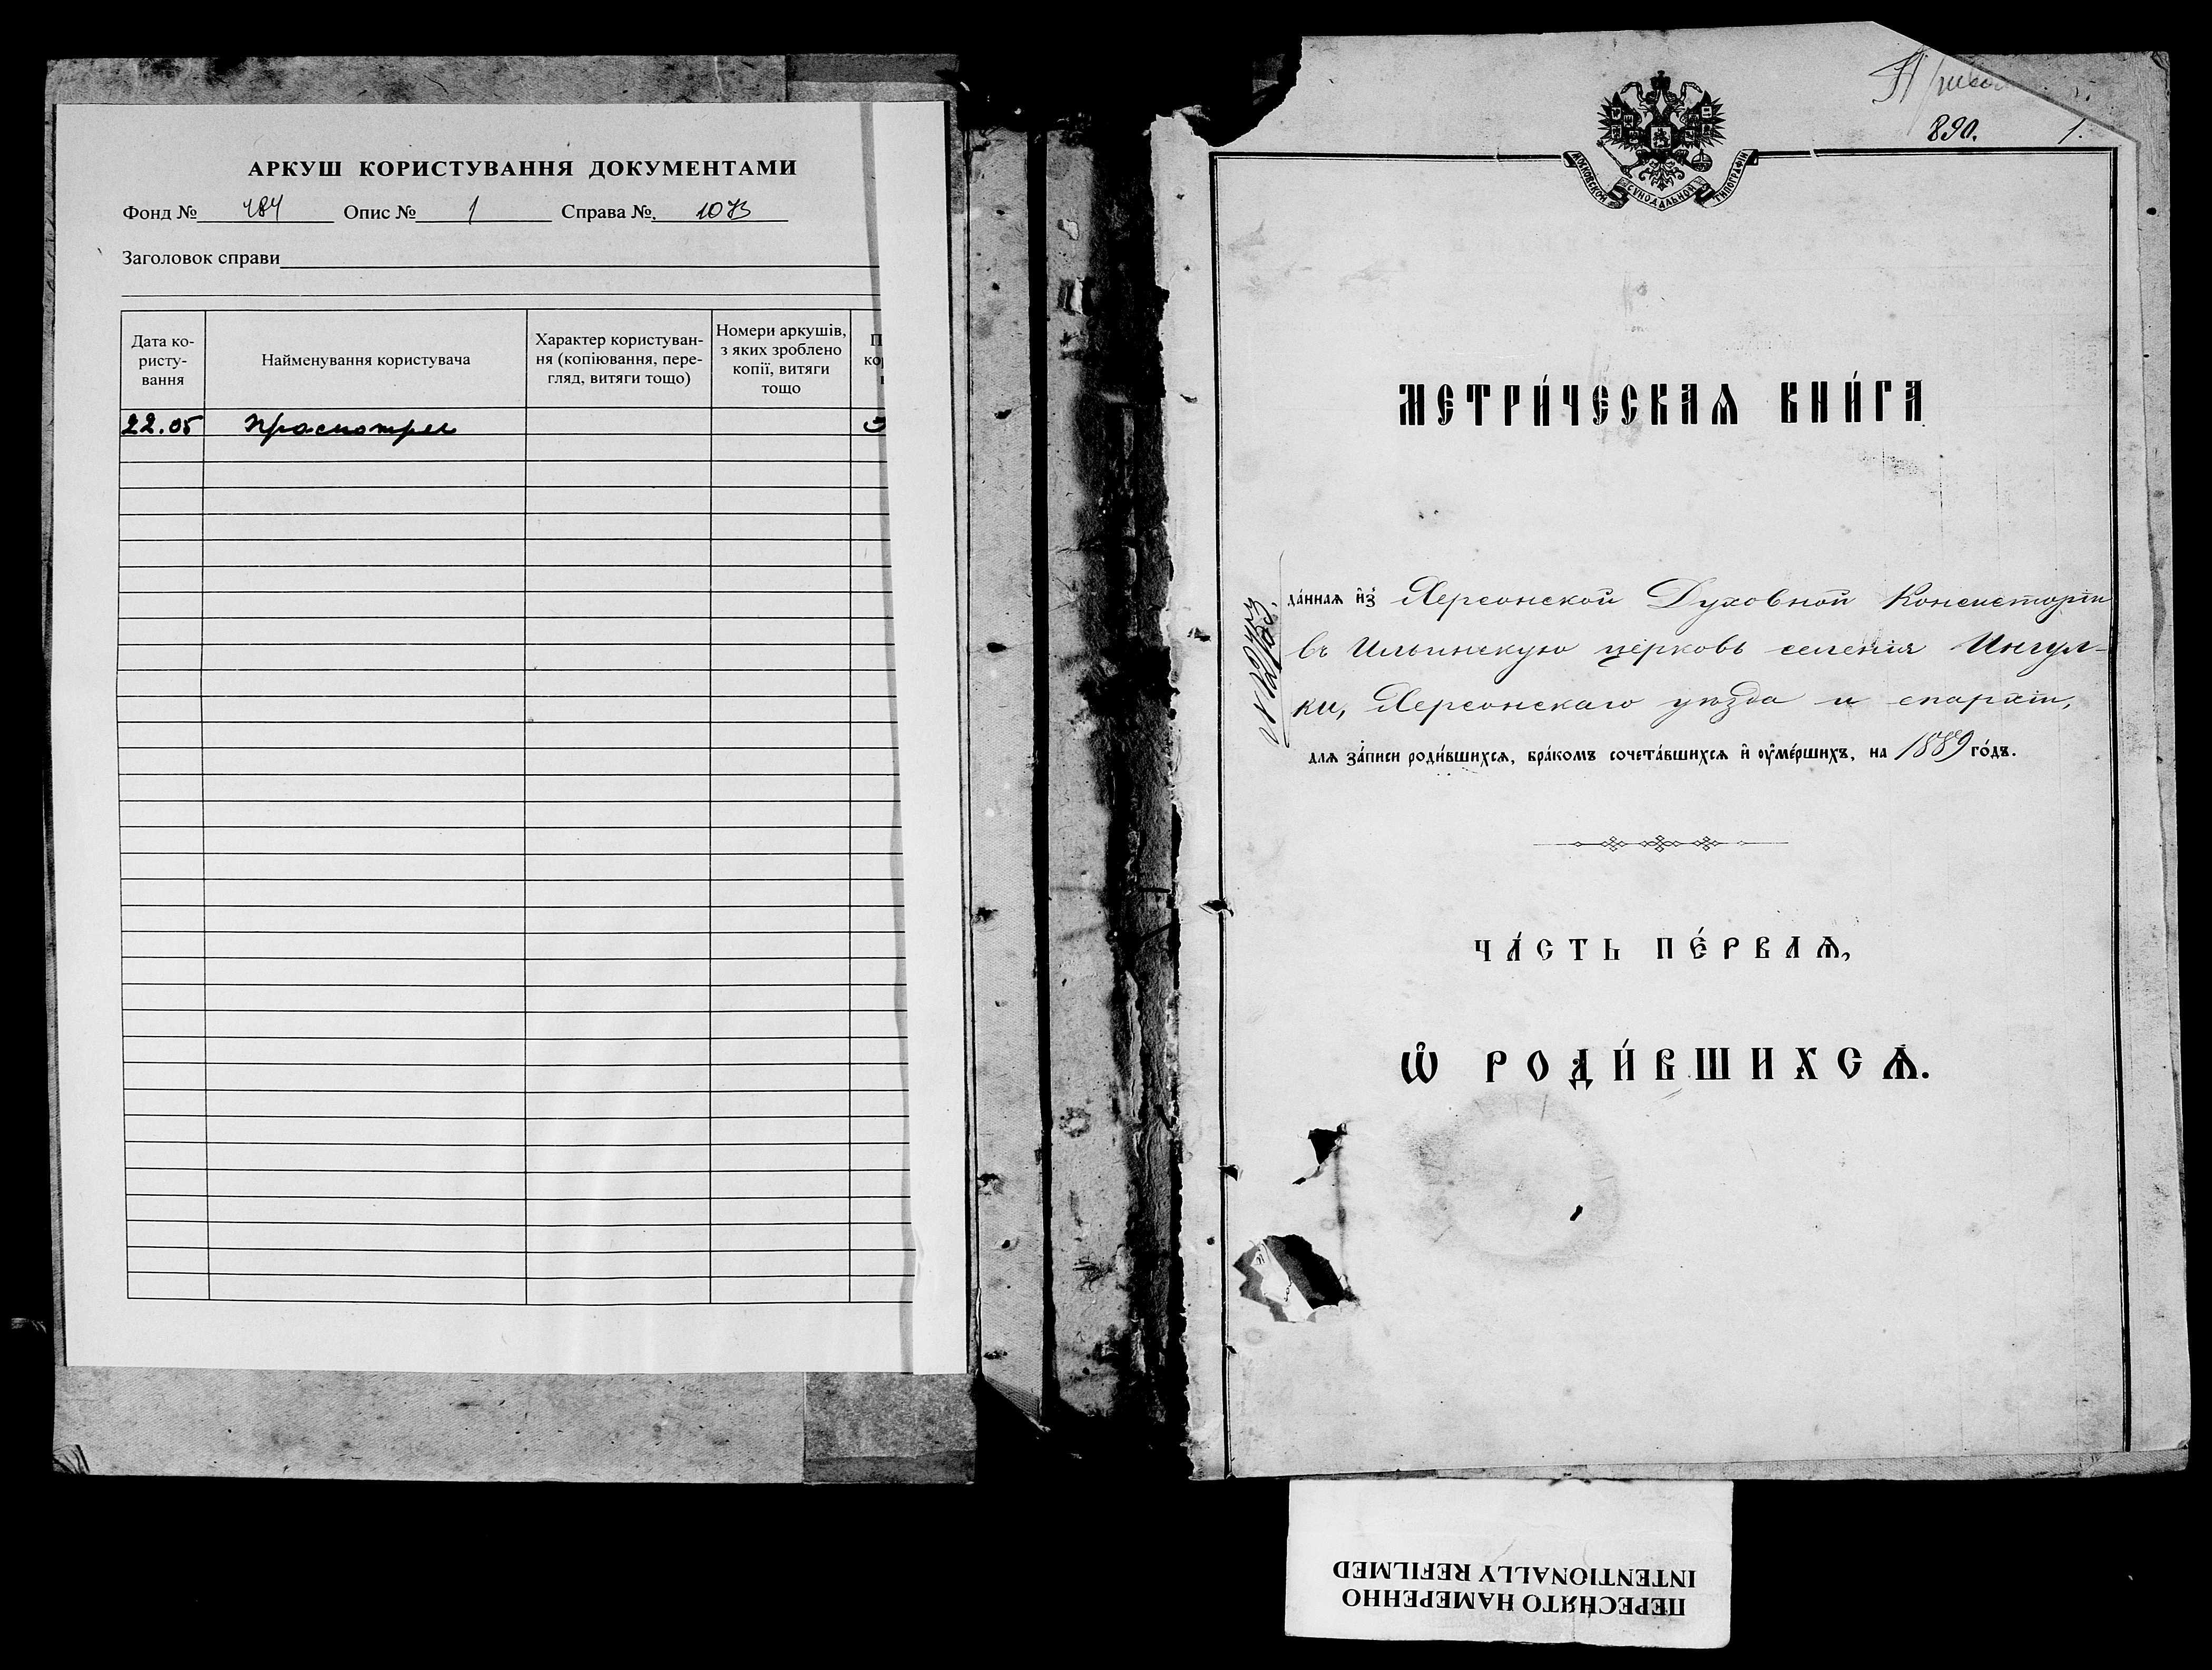 АРКУШ КОРИСТУВАННЯ ДОКУМЕНТАМИ
Фонд № 484 Опис № 1 Справа № 1073
Заголовок справи
Дата ко-
ристу-
вання
Найменування користувача
Характер користуван-
ня (копіювання, пере-
гляд, витяги тощо)
Номери аркушів,
з яких зроблено
копії, витяги
тощо
22.05
890. 1.
МОСКОВСКОЙ СѴНОДАЛЬНОЙ ТИПОГРАФІИ
МЕТРИ́ЧЕСКАѦ КНИ́ГА
да́ннаѧ и҆з̾ Херсонской Духовной Консисторіи
въ Ильинскую церковь селенія Ингул-
ки, Херсонскаго уѣзда и епархіи,
длѧ за́писи роди́вшихсѧ, бра́комъ сочета́вшихсѧ и҆ ᲂу҆ме́ршихъ, на 1889 го́дъ.
ЧА́СТЬ ПЕ́РВАѦ,
Ѡ҆ РОДИ́ВШИХСѦ.
ПЕРЕСНЯТО НАМЕРЕННО
INTENTIONALLY REFILMED